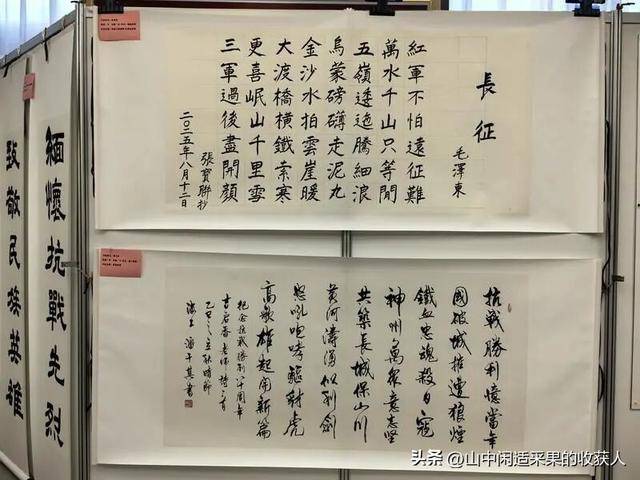 長征
毛澤東
紅軍不怕遠征難
萬水千山只等閒
五嶺逶迤騰細浪
烏蒙磅礴走泥丸
金沙水拍雲崖暖
大渡橋橫鐵索寒
更喜岷山千里雪
三軍過後盡開顏
張寶聯抄
二〇二五年八月十二日
抗戰勝利憶當年
國破城摧遭狼煙
鐵血忠魂殺日寇
神州萬眾意志堅
共築長城保山川
黃河濤湧似利劍
怒吼咆哮驅豺虎
高歌雄起開新篇
紀念抗戰勝利八十周年
老師詩一首
乙巳之立秋時節
海上
書
緬懷抗戰先烈
致敬民族英雄
头条 @山中闲适采果的收获人